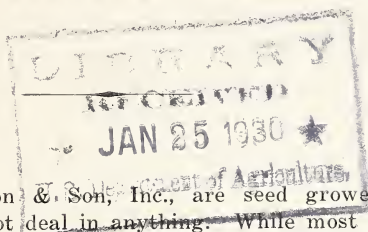 LIBRARY
RECEIVED
JAN 25 1930 ★
U. S. Department of Agriculture.
on & Son, Inc., are seed growe
ot deal in anything. While most